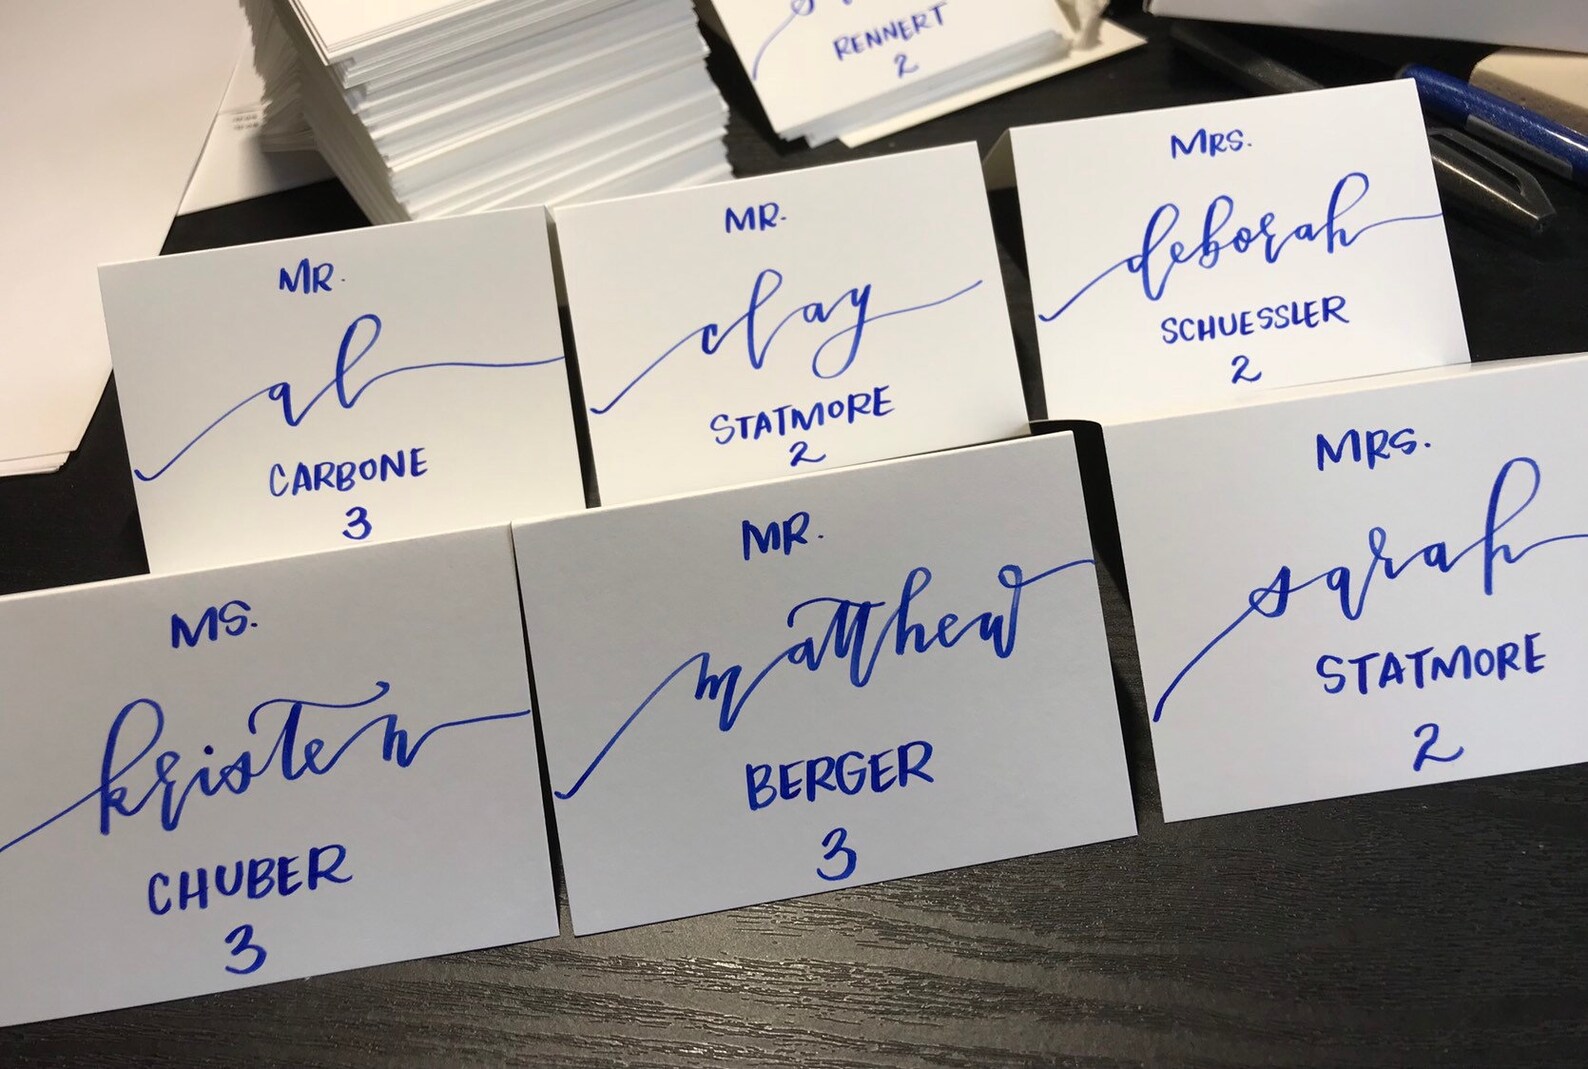 RENNERT
2
MR.
al
CARBONE
3
MR.
clay
STATMORE
2
MRS.
deborah
SCHUESSLER
2
MS.
kristen
CHUBER
3
MR.
matthew
BERGER
3
MRS.
sarah
STATMORE
2